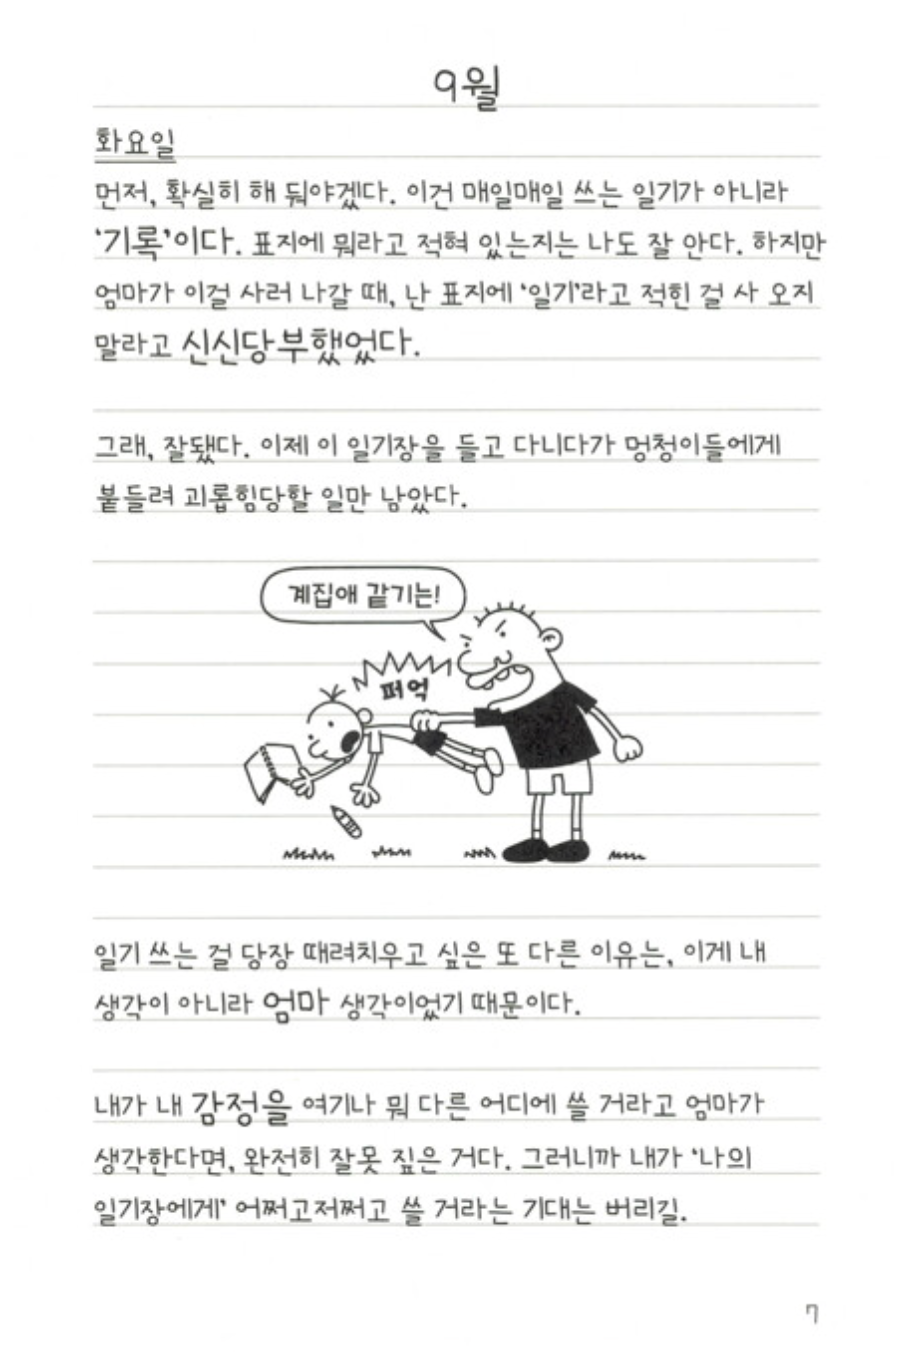 9월
화요일
먼저, 확실히 해 둬야겠다. 이건 매일매일 쓰는 일기가 아니라
‘기록’이다. 표지에 뭐라고 적혀 있는지는 나도 잘 안다. 하지만
엄마가 이걸 사러 나갈 때, 난 표지에 ‘일기’라고 적힌 걸 사 오지
말라고 신신당부했었다.
그래, 잘됐다. 이제 이 일기장을 들고 다니다가 멍청이들에게
붙들려 괴롭힘당할 일만 남았다.
계집애 같기는!
퍼억
일기 쓰는 걸 당장 때려치우고 싶은 또 다른 이유는, 이게 내
생각이 아니라 엄마 생각이었기 때문이다.
내가 내 감정을 여기나 뭐 다른 어디에 쓸 거라고 엄마가
생각한다면, 완전히 잘못 짚은 거다. 그러니까 내가 ‘나의
일기장에게’ 어쩌고저쩌고 쓸 거라는 기대는 버리길.
7